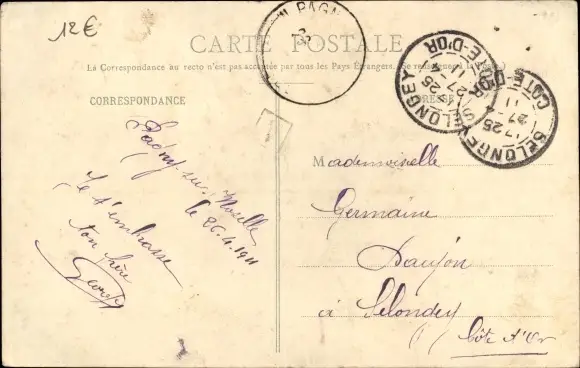 12€
PAGN
CARTE POSTALE
La Correspondance au recto n'est pas acceptée par tous les Pays Étrangers. (Se renseigner à la Poste)
CORRESPONDANCE
SELONGEY
17 25
27 - 4
11
CÔTE-D'OR
SELONGEY
17 25
27 - 4
11
CÔTE-D'OR
Pagny-sur-Moselle
le 26.4.1911
Je t'embrasse
ton frère
Mademoiselle
Germaine
Daujon
à Selongey
Côte d'Or